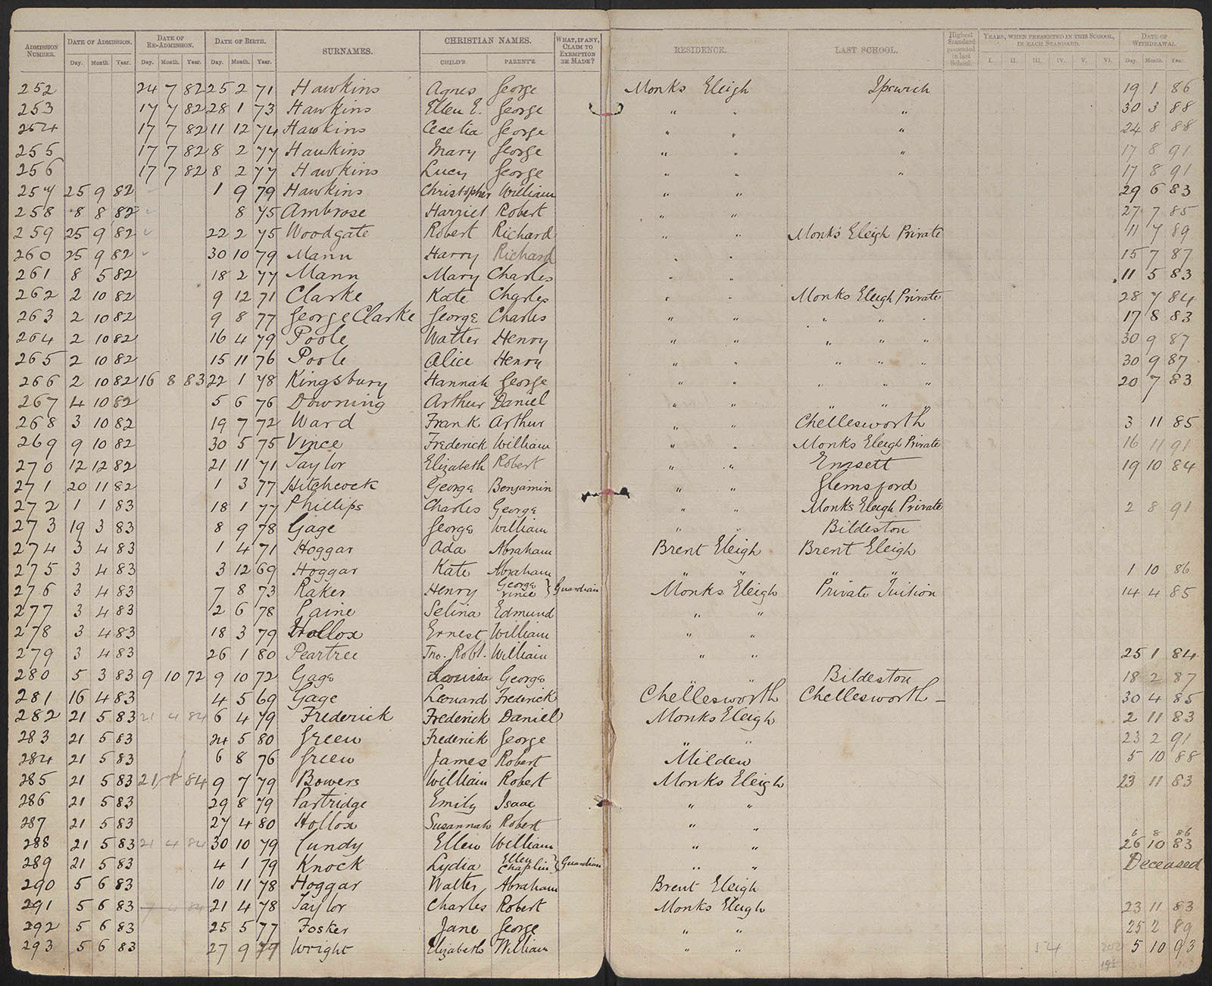 ADMISSION NUMBER. DATE OF ADMISSION. DATE OF RE-ADMISSION. DATE OF BIRTH. SURNAMES. CHRISTIAN NAMES. WHAT, IF ANY, CLAIM TO EXEMPTION BE MADE? RESIDENCE. LAST SCHOOL. Highest Standard presented in last School. YEARS, WHEN PRESENTED IN THIS SCHOOL, IN EACH STANDARD. DATE OF WITHDRAWAL.
Day. Month. Year. Day. Month. Year. Day. Month. Year. CHILD'S PARENT'S. I. II. III. IV. V. VI. Day. Month. Year.
252 24 7 82 25 2 71 Hawkins Agnes George Monks Eleigh Ipswich 19 1 86
253 17 7 82 28 1 73 Hawkins Ellen E. George " " " 30 3 88
254 17 7 82 11 12 74 Hawkins Cecelia George " " " 24 8 88
255 17 7 82 8 2 77 Hawkins Mary George " " " 17 8 91
256 17 7 82 8 2 77 Hawkins Lucy George " " " 17 8 91
257 25 9 82 1 9 79 Hawkins Christopher William " " 29 6 83
258 8 8 82 8 75 Ambrose Harriet Robert " " 27 7 85
259 25 9 82 22 2 75 Woodgate Robert Richard " " Monks Eleigh Private 11 7 89
260 25 9 82 30 10 79 Mann Harry Richard " " 15 7 87
261 8 5 82 18 2 77 Mann Mary Charles " " 11 5 83
262 2 10 82 9 12 71 Clarke Kate Charles " " Monks Eleigh Private 28 7 84
263 2 10 82 9 8 77 George Clarke George Charles " " " " " 17 8 83
264 2 10 82 16 4 79 Poole Walter Henry " " " " " 30 9 87
265 2 10 82 15 11 76 Poole Alice Henry " " " " " 30 9 87
266 2 10 82 16 8 83 22 1 78 Kingsbury Hannah George " " " " " 20 7 83
267 4 10 82 5 6 76 Downing Arthur Daniel " " " "
268 3 10 82 19 7 72 Ward Frank Arthur " " Chellesworth 3 11 85
269 9 10 82 30 5 75 Vince Frederick William " " Monks Eleigh Private 16 11 91
270 12 12 82 21 11 71 Taylor Elizabeth Robert " " 19 10 84
271 20 11 82 1 3 77 Hitchcock George Benjamin " " Glemsford
272 1 1 83 18 1 77 Phillips Charles George " " Monks Eleigh Private 2 8 91
273 19 3 83 8 9 78 Gage George William " " Bildeston
274 3 4 83 1 4 71 Hoggar Ada Abraham Brent Eleigh Brent Eleigh
275 3 4 83 3 12 69 Hoggar Kate Abraham " " " " 1 10 86
276 3 4 83 7 8 73 Raker Henry George Vince } Guardian Monks Eleigh Private Tuition 14 4 85
277 3 4 83 2 6 78 Laine Selina Edmund " "
278 3 4 83 18 3 79 Hollox Ernest William " "
279 3 4 83 26 1 80 Peartree Tho. Robt. William " " 25 1 84
280 5 3 83 9 10 72 9 10 72 Gage Louisa George " " Bildeston 18 2 87
281 16 4 83 4 5 69 Gage Leonard Frederick Chellesworth Chellesworth – 30 4 85
282 21 5 83 21 4 84 6 4 79 Frederick Frederick Daniel Monks Eleigh 2 11 83
283 21 5 83 24 5 80 Green Frederick George " " 23 2 91
284 21 5 83 6 8 76 Green James Robert Milden 5 10 88
285 21 5 83 21 8 84 9 7 79 Bowers William Robert Monks Eleigh 23 11 83
286 21 5 83 29 8 79 Partridge Emily Isaac " "
287 21 5 83 27 4 80 Hollox Susannah Robert " "
6 8 86
288 21 5 83 21 4 84 30 10 79 Cundy Ellen William " " 26 10 83
289 21 5 83 4 1 79 Knock Lydia Ellen Chaplin } Guardian " " Deceased
290 5 6 83 10 11 78 Hoggar Walter Abraham Brent Eleigh
291 5 6 83 7 4 84 21 4 78 Taylor Charles Robert Monks Eleigh 23 11 83
292 5 6 83 25 5 77 Fosker Jane George " " 25 2 89
293 5 6 83 27 9 79 Wright Elizabeth William " " 5 10 93